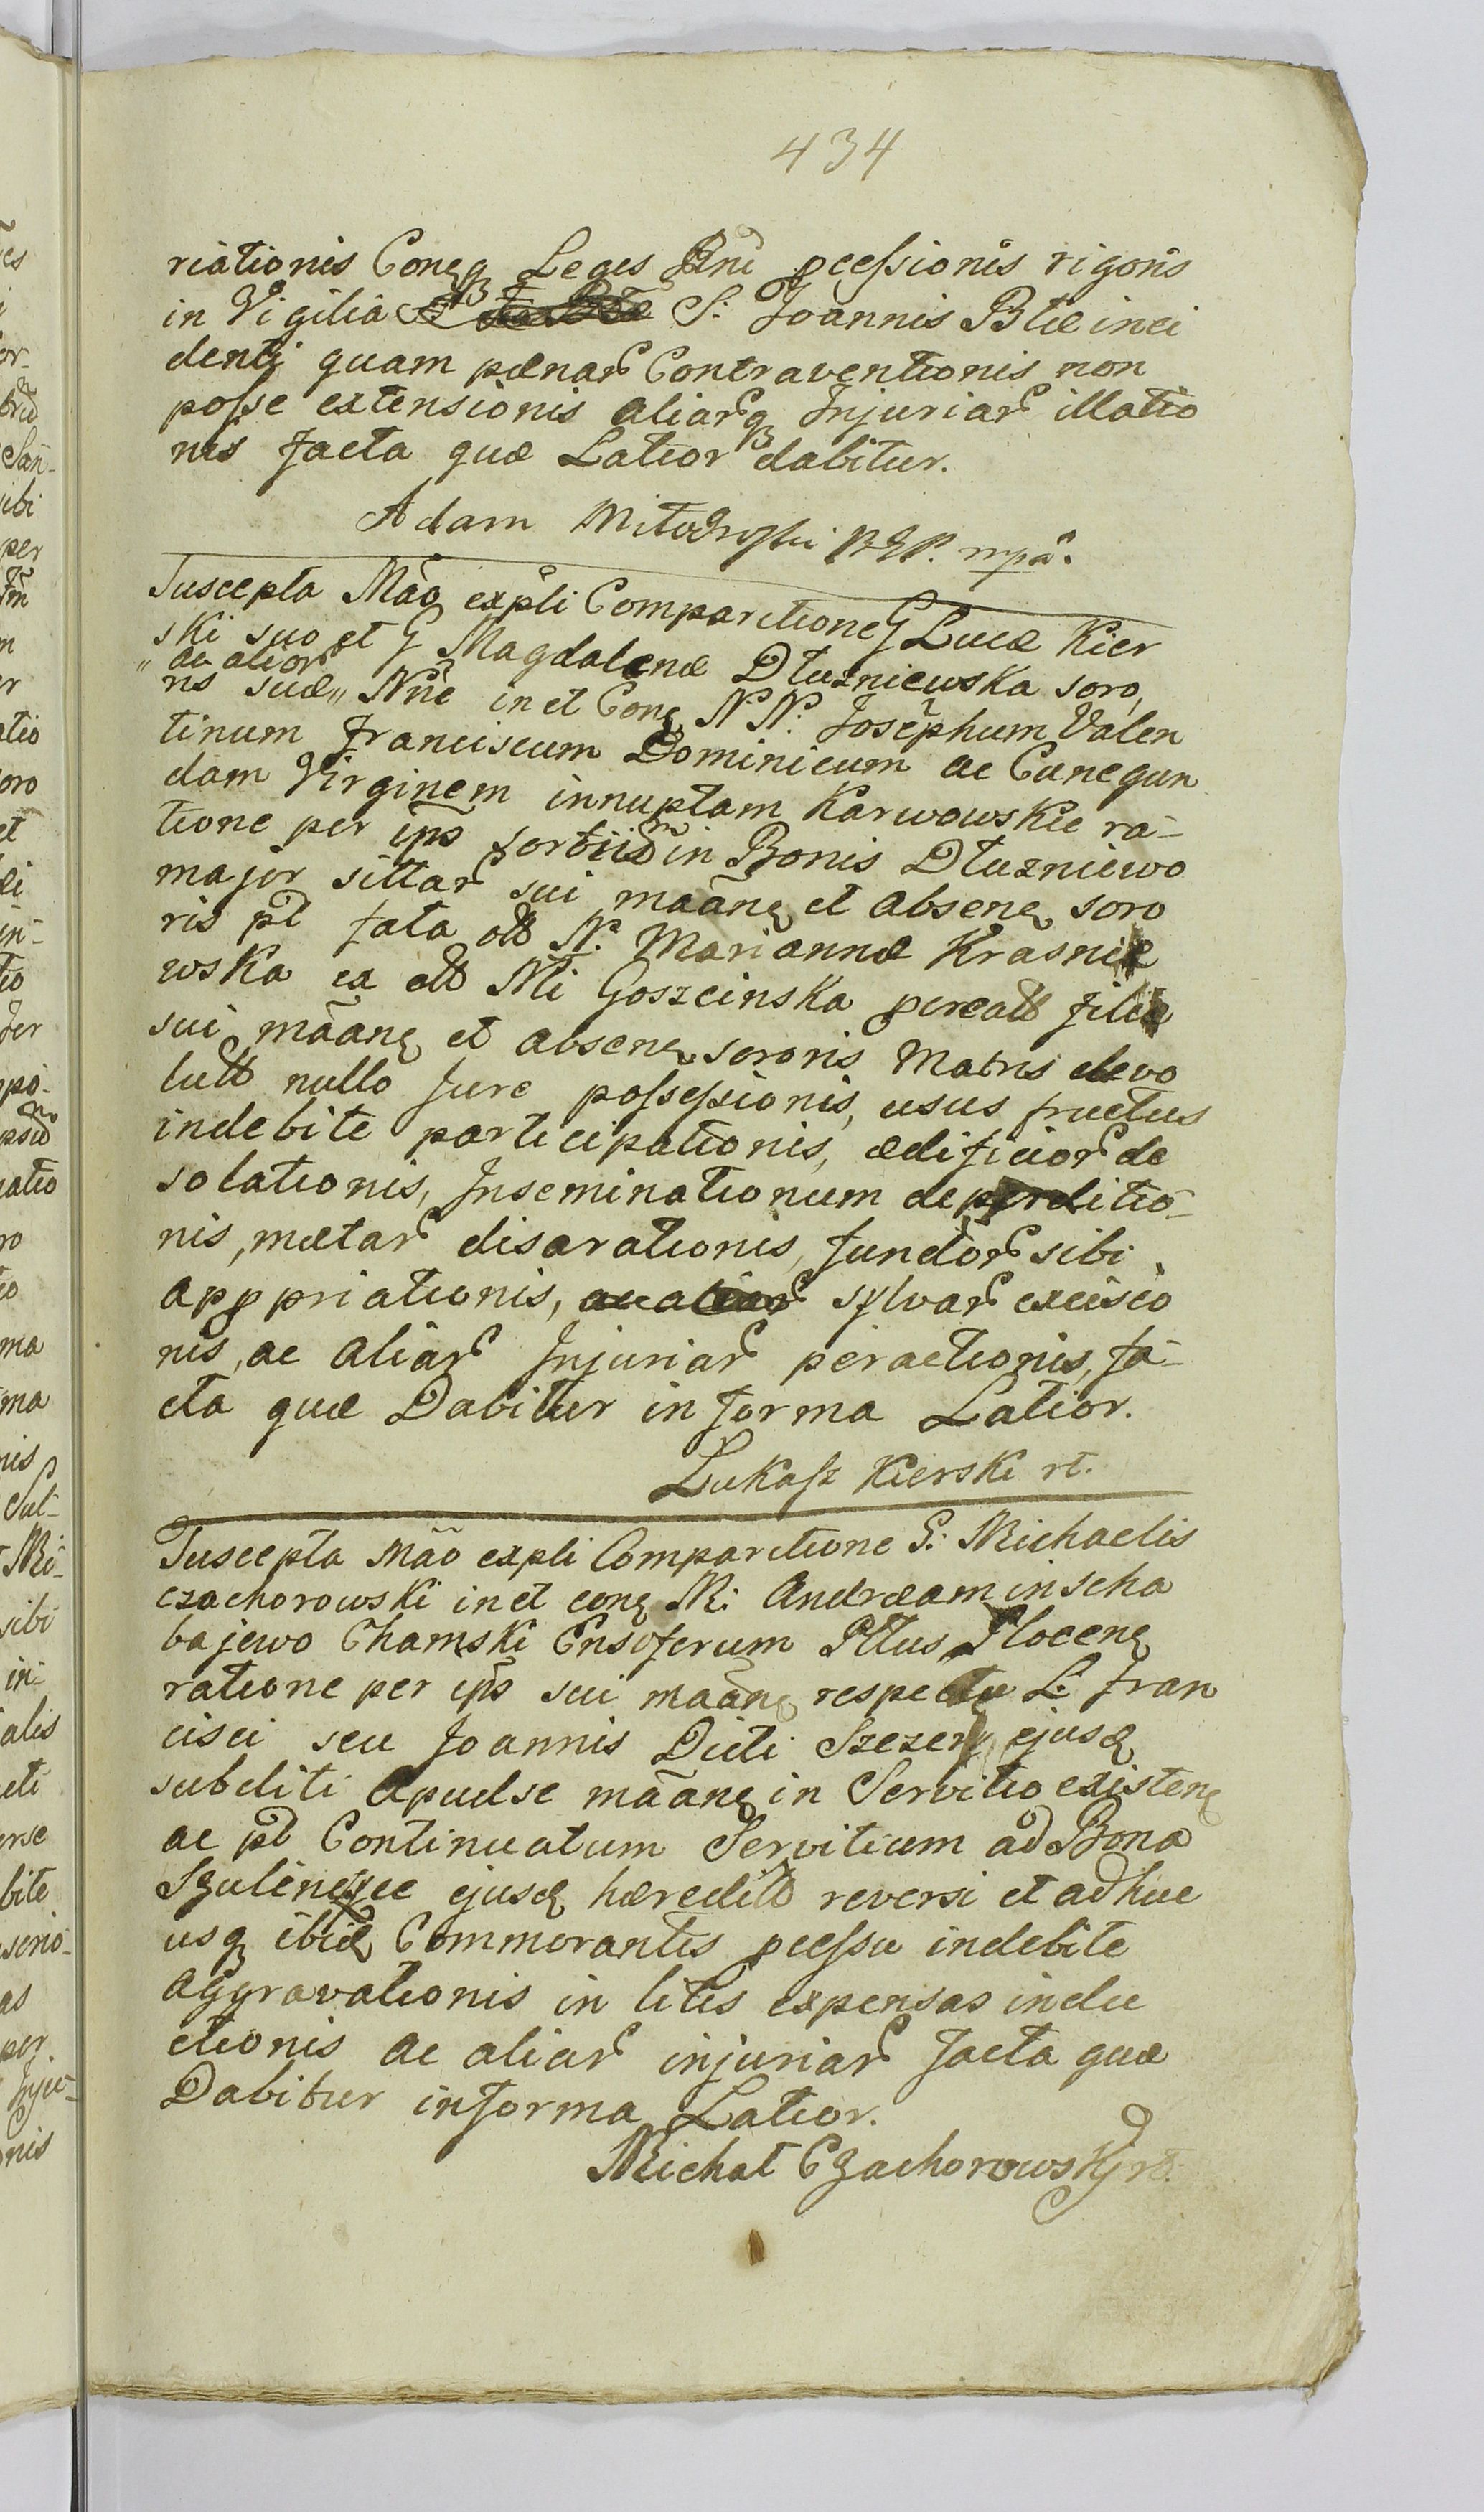 434
riationis Conęq Leges Rni pcessionis rigoris
in Vigilia S: Joannis Btæ inci
denti quam pænar Contraventionis non
posse extensionis aliarq Injuriar illatio
nis facta quæ Latior dabitur.
Adam mpa.
Suscepta Mão expli Comparitione G Lucæ Kier
ski suo et G Magdalenæ Dłużniewska soro,
" ac alior
ris suæ " Nñe in et Conę N. N. Josephum Valen
tinum Franciscum Dominicum ac Cunegun
dam Virginem innuptam Karwowskie ra-
tione per ips sortiis in Bonis Dłuzniewo
major sittar sui maãnę et absenę soro
ris pt fata ott N. Mariannæ Krasnie
wska ex ott Mi Goszcinska pcreatt filiæ
sui maãnę et absenę sororis Matris devo
lutt nullo jure possessionis, usus fructus
indebite participationis, ædificior de
solationis, Inseminationum deperditio-
nis, mætar disarationis, fundor sibi
apppriationis, ac aliar sylvar excisio
nis, ac aliar Injuriar peractionis, fa-
cta quæ Dabitur in forma Latior.
Lukasz Kierski rt.
Suscepta Mão expli Comparitione G: Michaelis
czachorowski in et conę M: Andræam in scha
bajewo Chamski Ensiferum Pttus Plocenę
ratione per ips sui maãnę respectu L: Fran
cisci seu Joannis Dicti Szczer ejusd
subditi apud se maãnę in Servitio existenę
ac pt Continuatum Servitium ad Bona
ejusd hæreditt reversi et adhuc
usq ibid Commorantis pcessu indebite
aggravationis in litis expensas indu
ctionis ac aliar injuriar facta quæ
Dabitur in forma Latior.
Michał Czachorowskj rt.